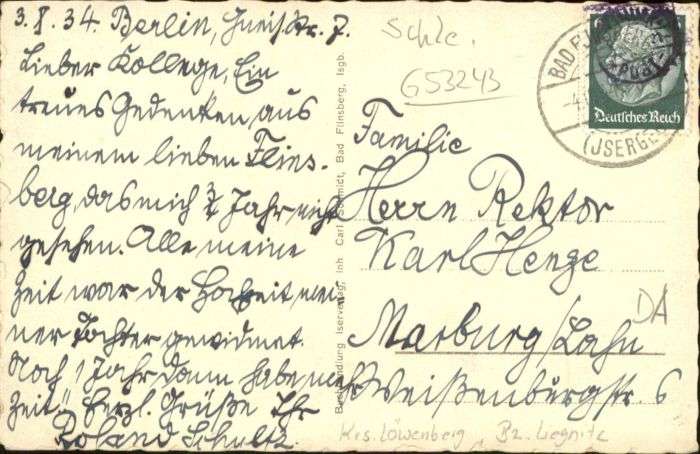 3. 8. 34. Berlin, Gneis.Str. 7.
Lieber Kollege, Ein
treues Gedenken aus
meinem lieben Flins-
berg, das mich 3/4 Jahr nicht
gesehen. Alle meine
Zeit war der Hochzeit mei-
ner Tochter gewidmet.
Noch 1 Jahr, dann habe mehr
Zeit. Herzl. Grüße Ihr
Roland Schultz.
Schle.
G53243
BAD FL
(JSERGE
Deutsches Reich
Familie
Herrn Rektor
Karl Henge
Marburg/Lahn
Weißenburgstr. 6
DA
Krs. Löwenberg Bz. Liegnitz
Buchhandlung Iserverlag, Inh. Carl Schmidt, Bad Flinsberg, Isgb.